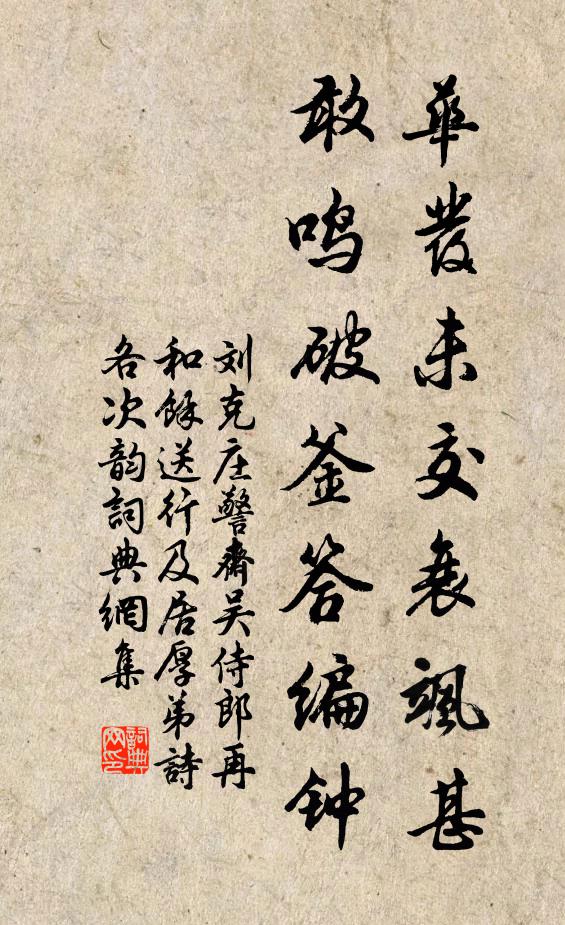 華發未交衰颯甚
敢鸣破釜答编钟
刘克庄警齋吴侍郎再
和餘送行及居厚弟詩
各次韵詞典網集
詞典網印